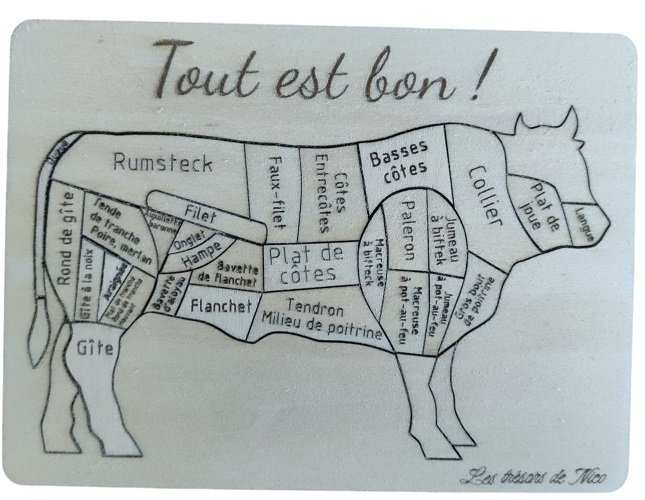 Tout est bon !
Queue
Rumsteck
Faux-filet
Côtes
Entrecôtes
Basses
côtes
Collier
Plat de
joue
Langue
Rond de gîte
Tende
de tranche
Poire, merlan
Gîte à la noix
Araignée
Aiguillette
baronne
Filet
Onglet
Hampe
Bavette
de flanchet
Bavette
d'aloyau
Flanchet
Plat de
côtes
Tendron
Milieu de poitrine
Macreuse
à bifteck
Paleron
Jumeau
à biftek
Macreuse
à pot-au-feu
Jumeau
à pot-au-feu
Gros bout
de poitrine
Gîte
Les trésors de Nico